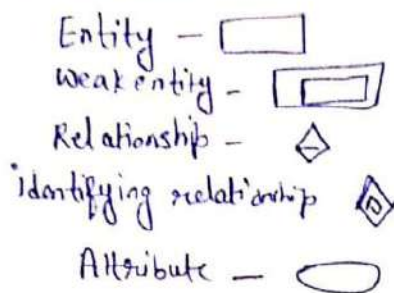 Entity –
Weak entity -
Relationship –
identifying relationship
Attribute —